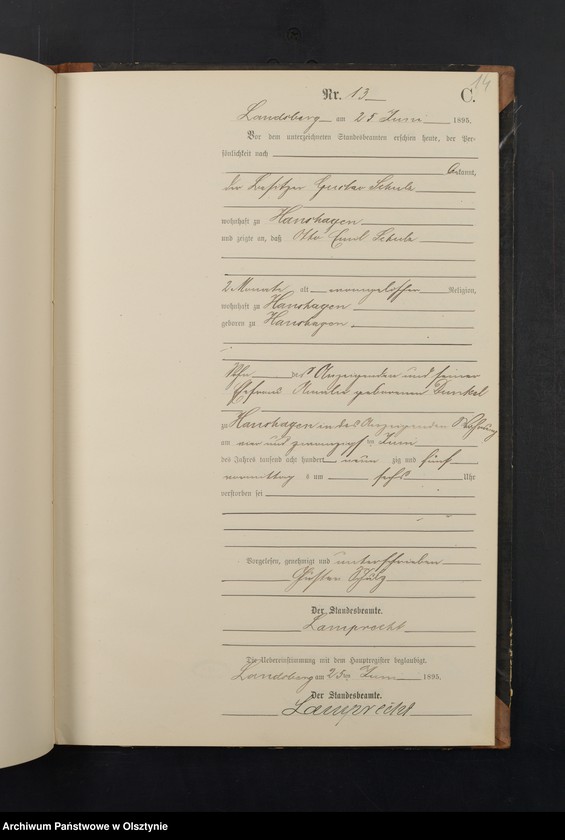 14
Nr. 13
C.
Landsberg am 25 Juni 1895.
Vor dem unterzeichneten Standesbeamten erschien heute, der Per-
sönlichkeit nach
kannt,
der Besitzer Gustav Schulz
wohnhaft zu Hanshagen
und zeigte an, daß Otto Emil Schulz
2 Monate alt evangelischer Religion,
wohnhaft zu Hanshagen
geboren zu Hanshagen
Sohn des Anzeigenden und seiner
Ehefrau Amalie geborenen Dunkel
zu Hanshagen in des Anzeigenden Wohnung
am vier und zwanzigsten Juni
des Jahres tausend acht hundert neun zig und fünf
vormittags um sechs Uhr
verstorben sei
Vorgelesen, genehmigt und unterschrieben
Gustav Schulz
Der Standesbeamte.
Lamprecht
Die Uebereinstimmung mit dem Hauptregister beglaubigt.
Landsberg am 25 Juni 1895.
Der Standesbeamte.
Lamprecht
Archiwum Państwowe w Olsztynie